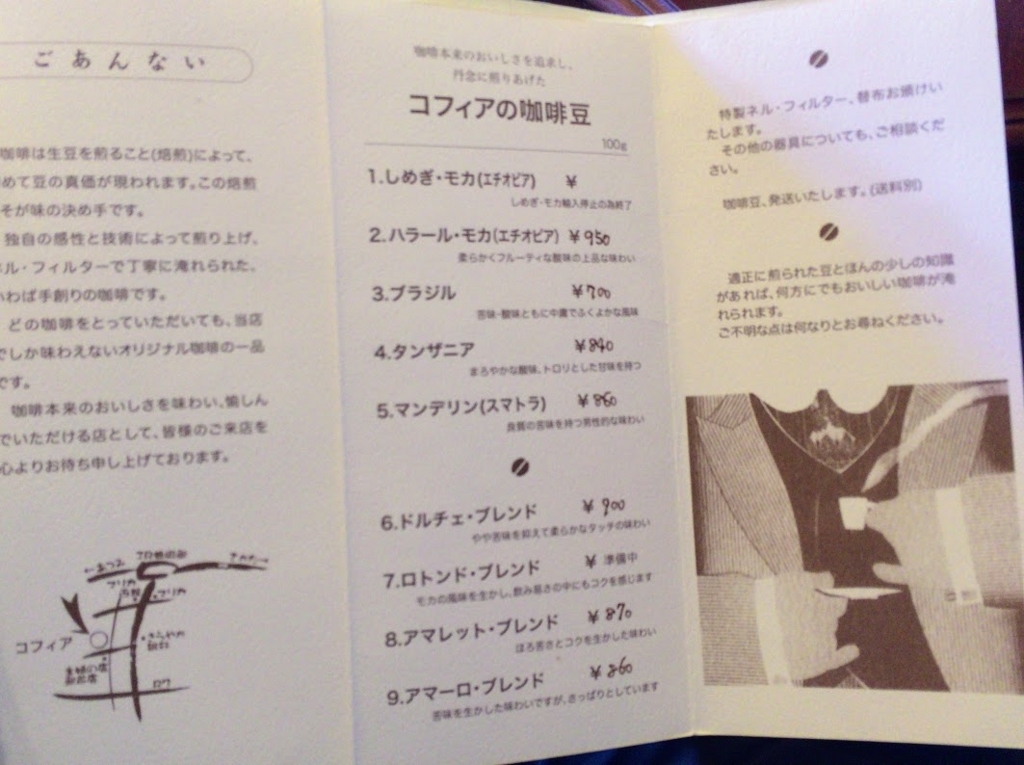 ごあんない
珈琲は生豆を煎ること(焙煎)によって、
めて豆の真価が現われます。この焙煎
そが味の決め手です。
独自の感性と技術によって煎り上げ、
ル・フィルターで丁寧に淹れられた、
わば手創りの珈琲です。
どの珈琲をとっていただいても、当店
でしか味わえないオリジナル珈琲の一品
です。
珈琲本来のおいしさを味わい、愉しん
でいただける店として、皆様のご来店を
心よりお待ち申し上げております。
コフィア
珈琲本来のおいしさを追求し、
丹念に煎りあげた
コフィアの珈琲豆
100g
1.しめぎ・モカ(エチオピア) ¥
しめぎ・モカ輸入停止の為終了
2.ハラール・モカ(エチオピア) ¥950
柔らかくフルーティな酸味の上品な味わい
3.ブラジル ¥700
苦味・酸味ともに中庸でふくよかな風味
4.タンザニア ¥840
まろやかな酸味、トロリとした甘味を持つ
5.マンデリン(スマトラ) ¥860
良質の苦味を持つ男性的な味わい
6.ドルチェ・ブレンド ¥900
やや苦味を抑えて柔らかなタッチの味わい
7.ロトンド・ブレンド ¥ 準備中
モカの風味を生かし、飲み易さの中にもコクを感じます
8.アマレット・ブレンド ¥870
ほろ苦さとコクを生かした味わい
9.アマーロ・ブレンド ¥860
苦味を生かした味わいですが、さっぱりとしています
特製ネル・フィルター、替布お頒けい
たします。
その他の器具についても、ご相談くだ
さい。
珈琲豆、発送いたします。(送料別)
適正に煎られた豆とほんの少しの知識
があれば、何方にでもおいしい珈琲が淹
れられます。
ご不明な点は何なりとお尋ねください。